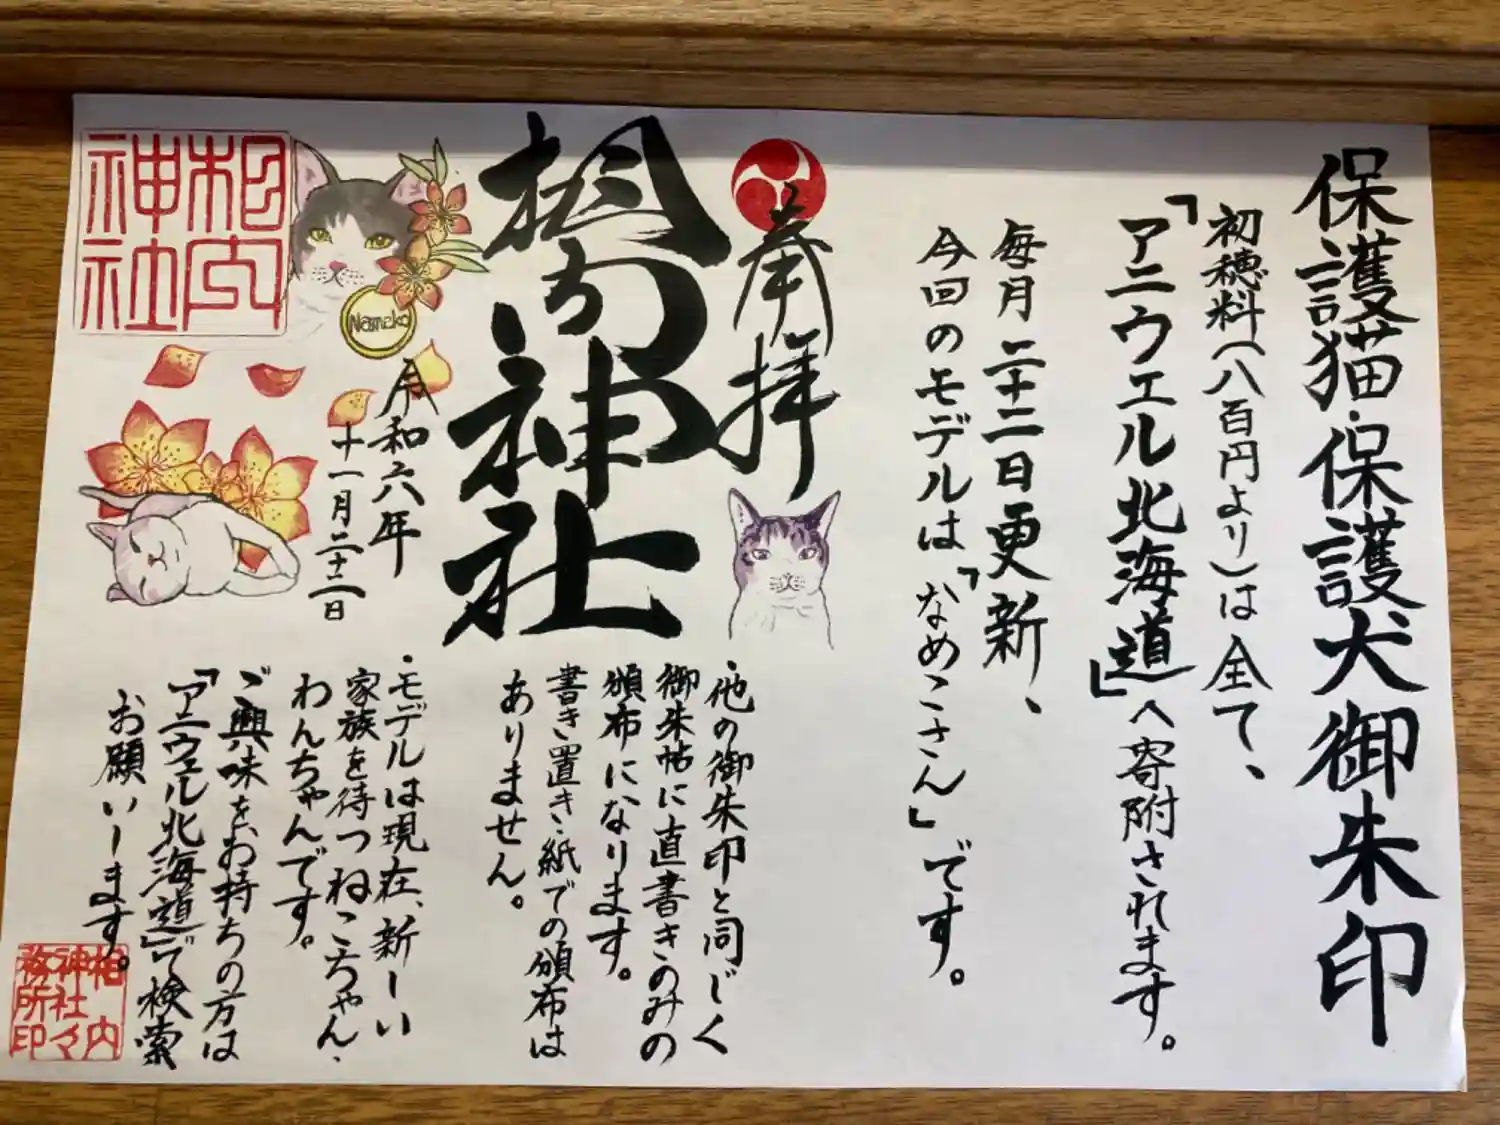 保護猫・保護犬御朱印
初穂料(八百円より)は全て、
「アニウェル北海道」へ寄附されます。
毎月二十二日更新、
今回のモデルは「なめこさん」です。
奉拝
相内神社
令和六年
十一月二十二日
相内
神社
Nameko
・他の御朱印と同じく
御朱帖に直書きのみの
頒布になります。
書き置き紙での頒布は
ありません。
・モデルは現在、新しい
家族を待つねこちゃん・
わんちゃんです。
ご興味をお持ちの方は
「アニウェル北海道」で検索
お願いします。
相内
神社々
務所印